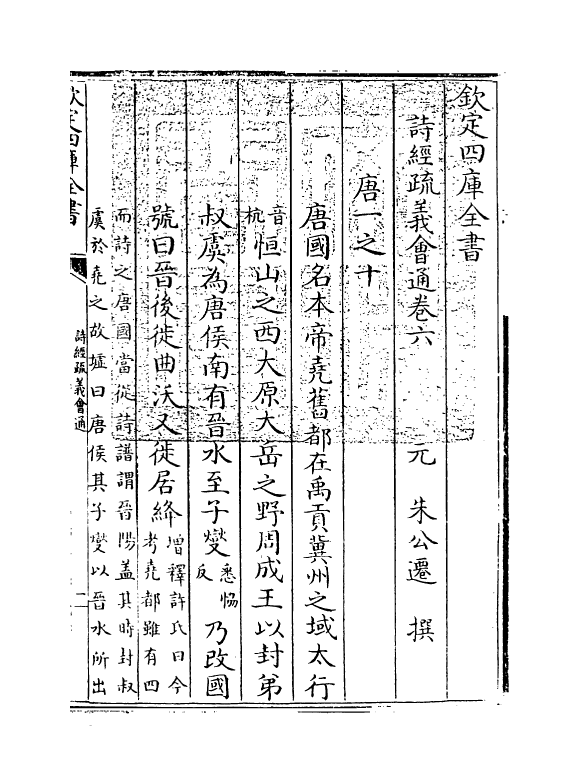 欽定四庫全書
詩經疏義會通卷六
元 朱公遷 撰
唐一之十
唐國名本帝堯舊都在禹貢冀州之域太行
音杭
恒山之西大原大岳之野周成王以封弟
叔虞為唐侯南有晉水至子燮
悉恊反
乃改國
號曰晉後徙曲沃又徙居絳
增釋許氏曰今
考堯都雖有四
而詩之唐國當從詩譜謂晉陽盖其時封叔
虞於堯之故墟曰唐侯其子燮以晉水所出
欽定四庫全書
詩經疏義會通